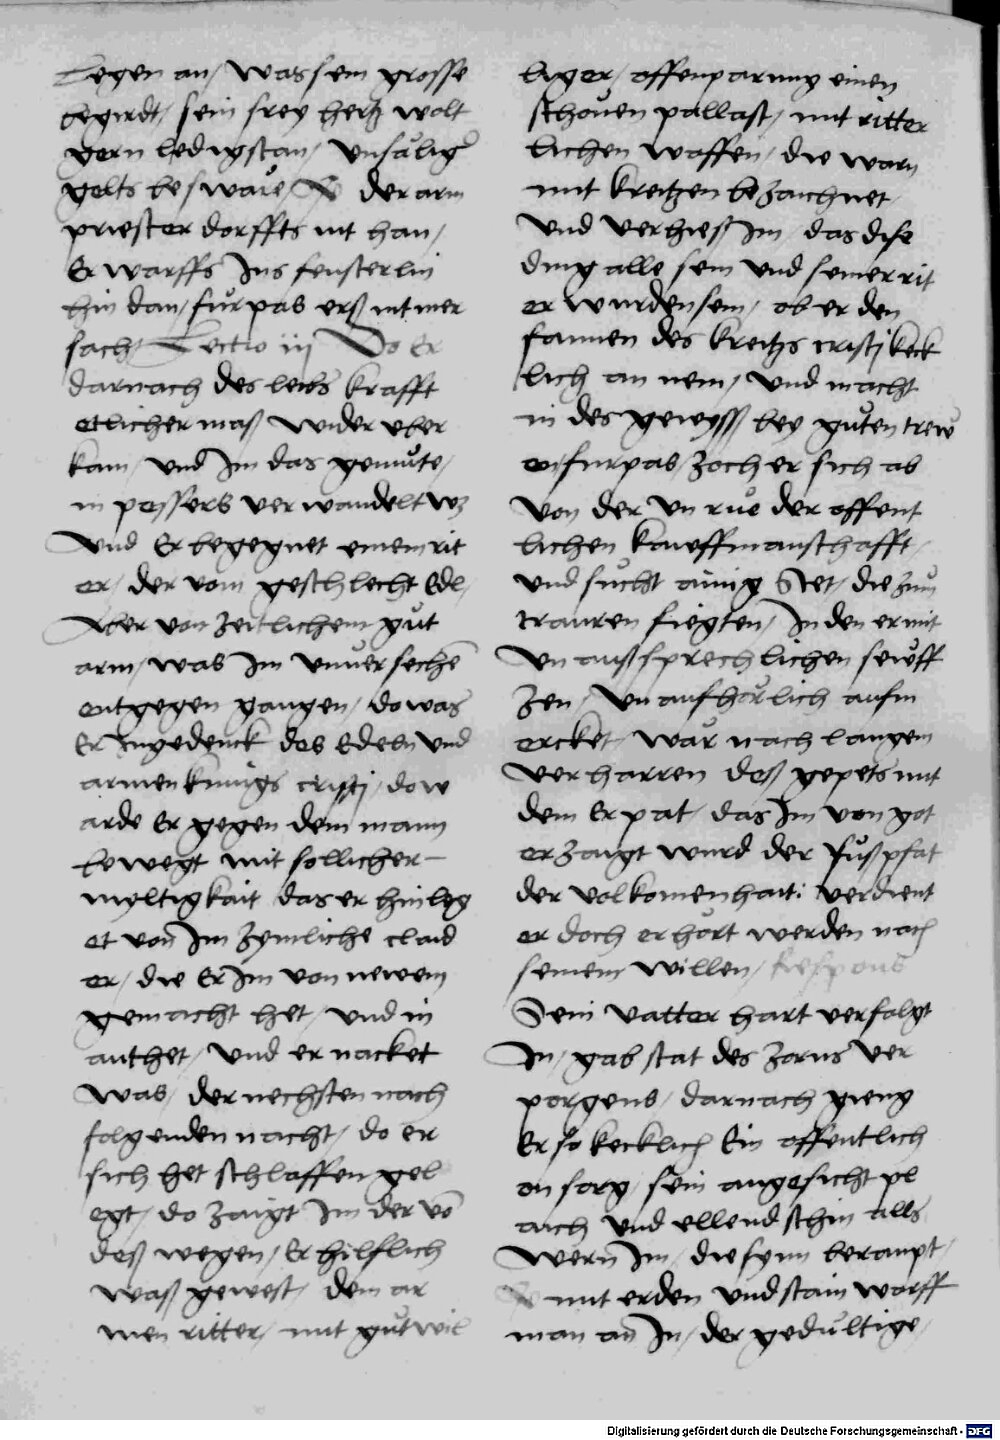 legen an / was sein grosse
begirdt / sein frey hertz wolt
gern ledig stan / Unsälig
gelts beswäre / der arm
priester dorffts nit han /
Er warffs Ins fensterlin
hin dan / fürpas ers nit mer
sach / Lectio iij Do Er
darnach des leibs krafft
etlicher maß wider vber
kam / und Im das gemüte /
in pessers verwandelt wz
Und Er begegnet einem rit
er / der vom geschlecht Edl /
Aber von zeitlichem gut
arm / was Im unversechē
entgegen gangen / do was
Er Ingedenck des Edeln und
armen kunigs cristj / do w
arde Er gegen dem mann
bewegt mit sollicher
myltigkait das er hin leg
et von Im zymliche claid
er / die Er Im von newem
gemacht het / und in
anthet / und er nacket
was / der nechsten nach
folgenden nacht / do er
sich het schlaffen gel
egt / do zaigt Im der vō
deß wegen / Er hilflich
waß gewest / dem ar
men ritter / mit gutwil
liger / offenparung einen
schonen pallast / mit ritter
lichen waffen / die warn
mit kreitzen bezaichnet /
Und verhieß Im / das dise
ding alle sein und seiner rit
er wurden sein / ob er den
fannen des kreitzs cristj keck
lich an nem / und macht
in des gewyss / bey guten trew
en / furpas / zoch er sich ab
von der unrue der offent
lichen kauffmanschafft /
und sucht ainig Stet / die zum
trauren fiegten / In den er mit
Unaußsprechlichen seüff
zen / unaufhörlich aufm
ercket / war nach langem
verharren deß gepets mit
dem Er pat / das Im von got
erzaigt wurd der fußpfat
der volkomenhait: verdient
er doch erhört werden nach
seinem willen / Respons
Sein vatter hart verfolgt
In / gab stat des zorns ver
porgens / darnach gieng
Er so kecklich Ein offentlich
on sorg / sein angesicht pl
aich und ellend schin alls
wern Im / die synn beraupt /
mit erden und stain warff
man an In / der gedultige /
Digitalisierung gefördert durch die Deutsche Forschungsgemeinschaft - DFG